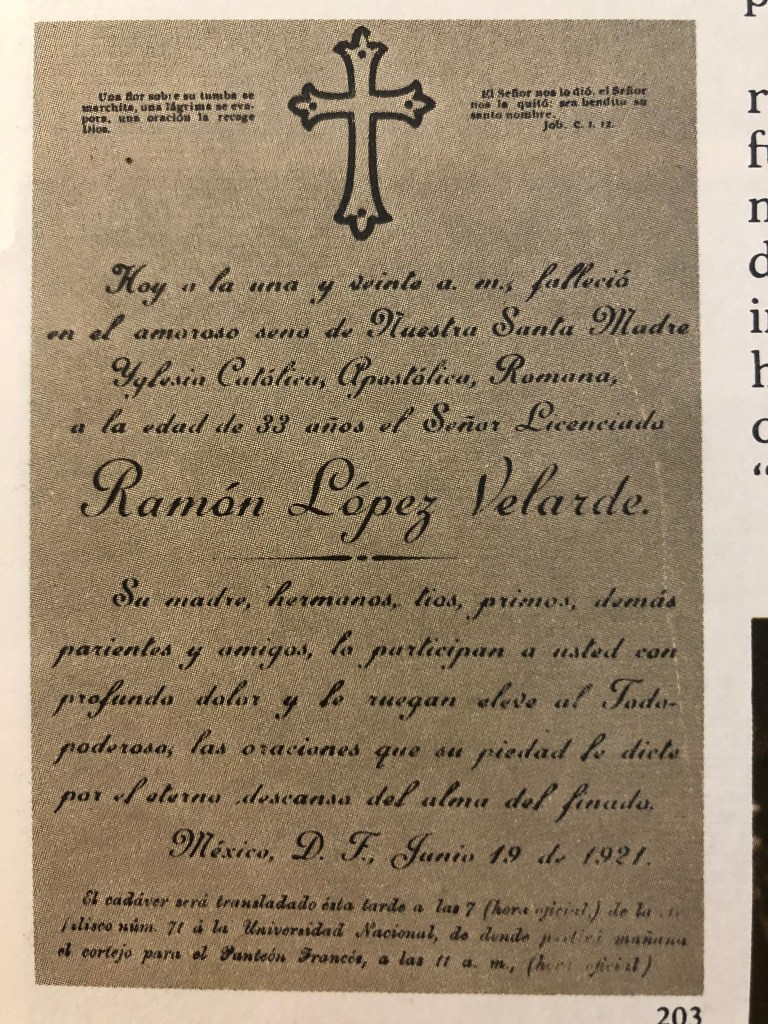 Una flor sobre su tumba se
marchita, una lágrima se eva-
pora, una oración la recoge
Dios.
El Señor nos lo dió, el Señor
nos la quitó: sea bendito su
santo nombre.
Job. C. 1. 12.
Hoy a la una y veinte a. m., falleció
en el amoroso seno de Nuestra Santa Madre
Yglesia Católica, Apostólica, Romana,
a la edad de 33 años el Señor Licenciado
Ramón López Velarde.
Su madre, hermanos, tios, primos, demás
parientes y amigos, lo participan a usted con
profundo dolor y le ruegan eleve al Todo-
poderoso, las oraciones que su piedad le dicte
por el eterno descanso del alma del finado.
México, D. F., Junio 19 de 1921.
El cadáver será transladado ésta tarde a las 7 (hora oficial) de la
núm. 71 á la Universidad Nacional, de donde partirá mañana
el cortejo para el Panteón Francés, a las 11 a. m., (hora oficial)
203